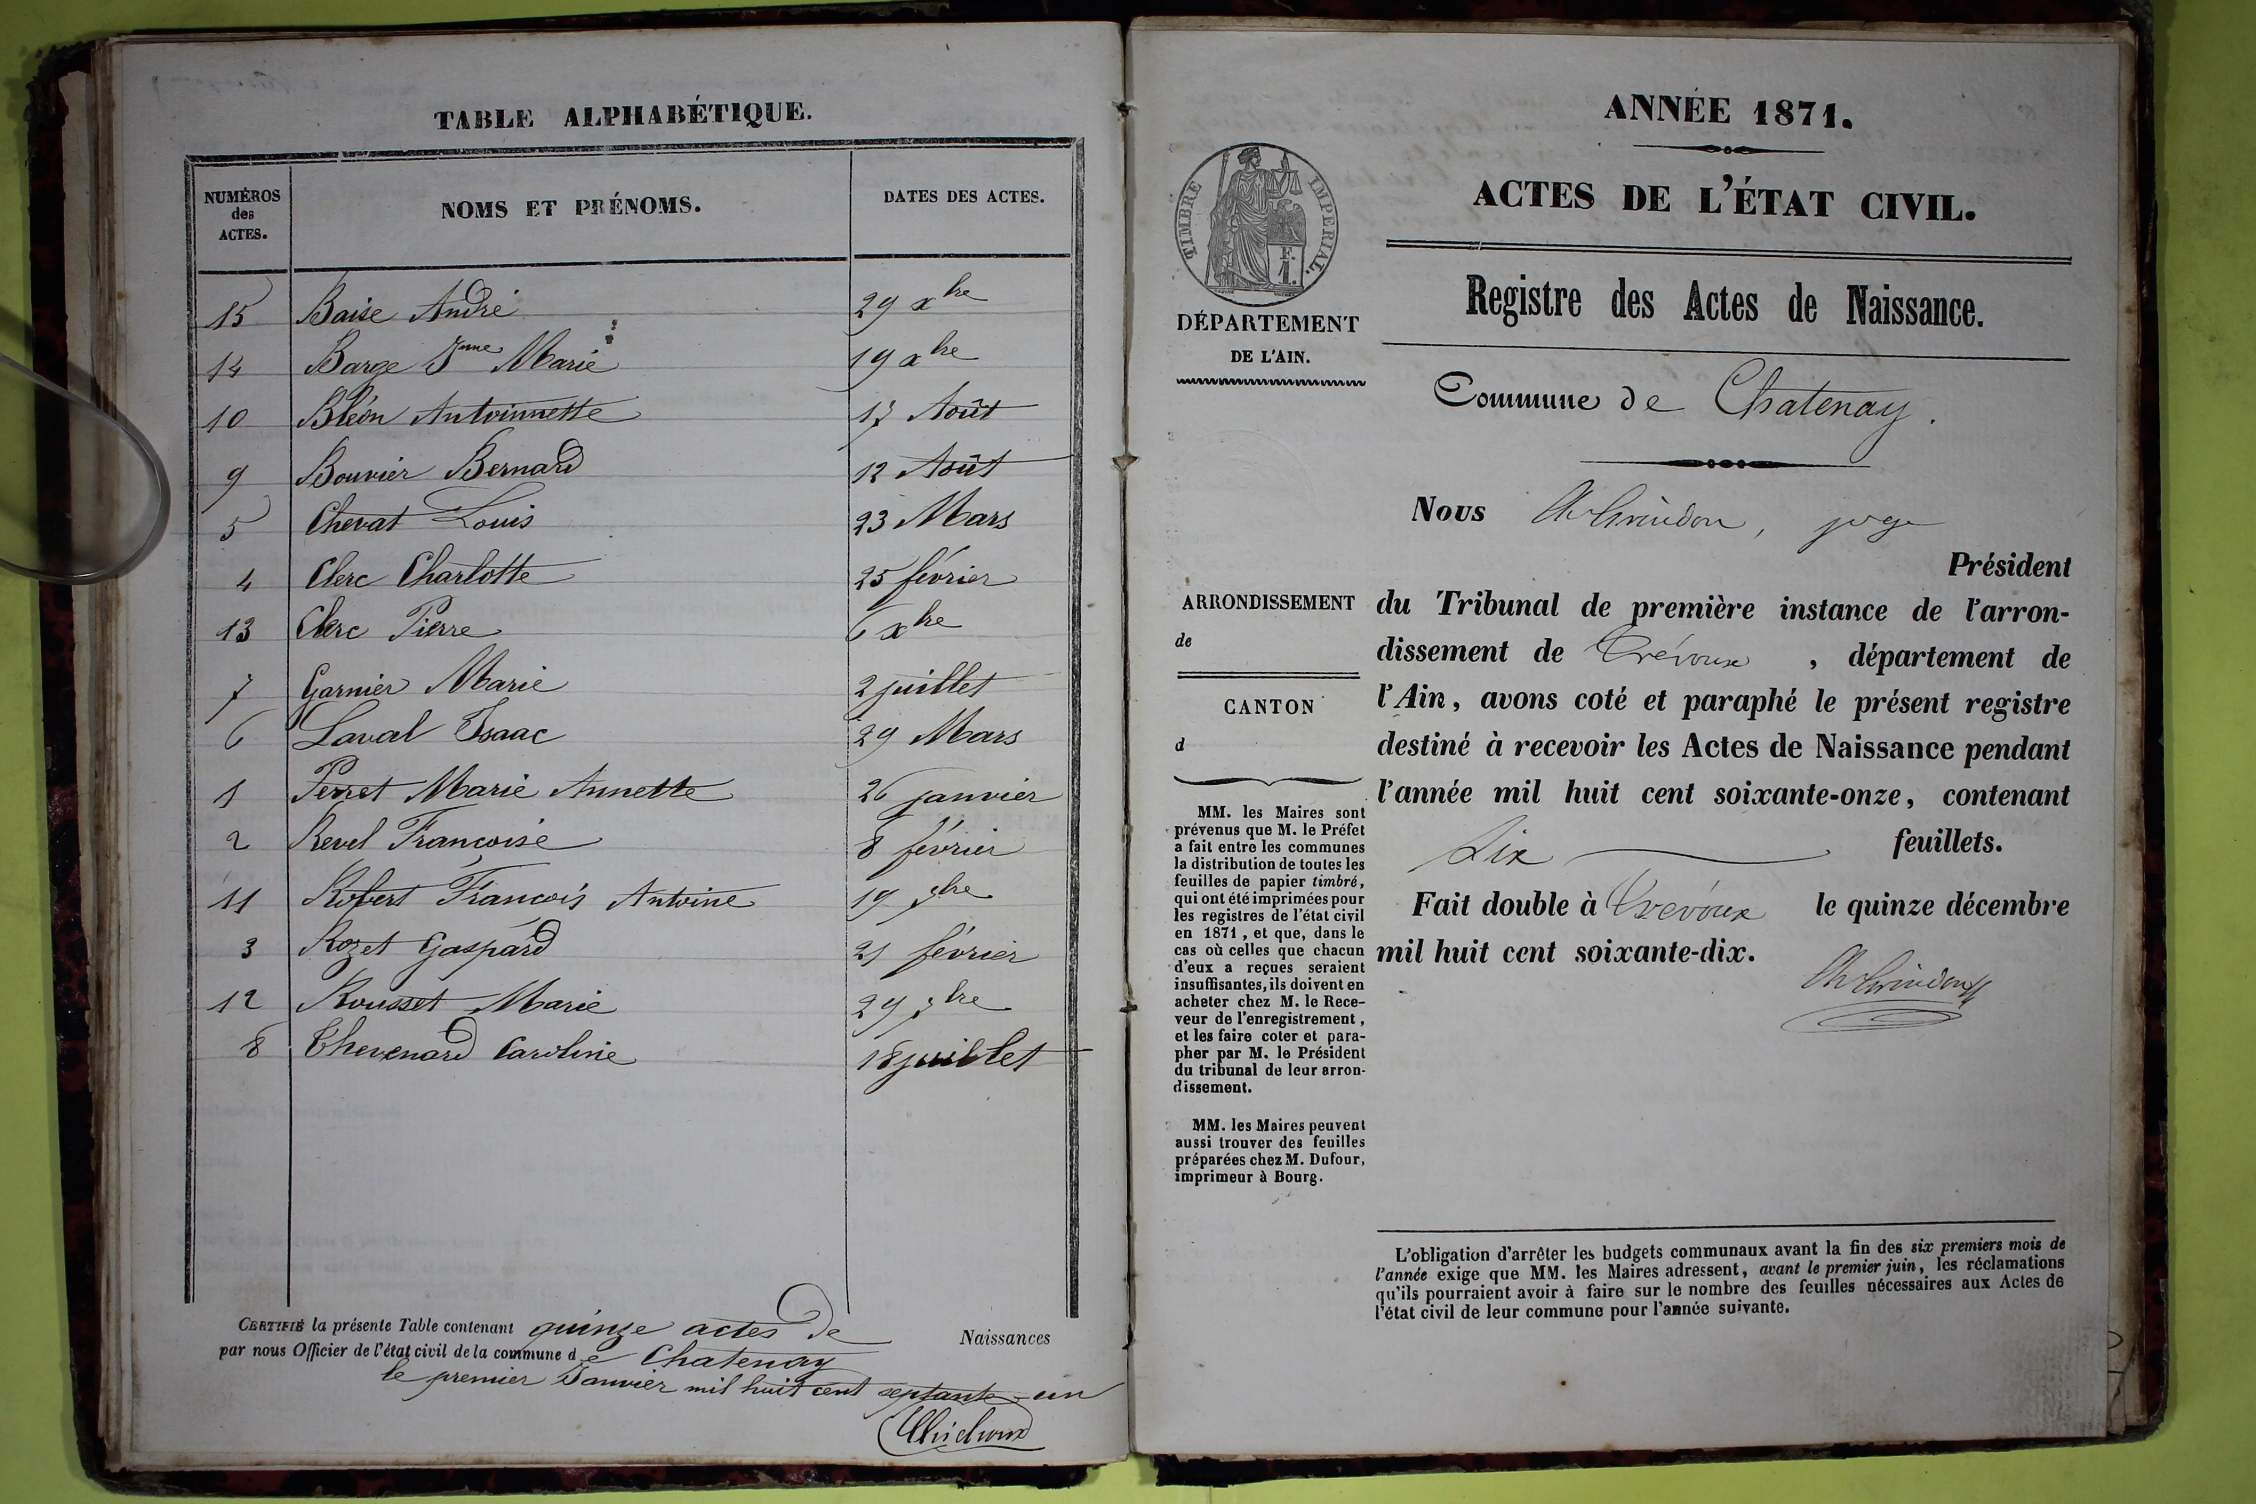 TABLE ALPHABÉTIQUE.
NUMÉROS des ACTES. NOMS ET PRÉNOMS. DATES DES ACTES.
15 Baise André 29 xbre
14 Barge Jnne Marie 19 xbre
10 Bléon Antoinnette 17 Août
9 Bouvier Bernard 12 Août
5 Chevat Louis 23 Mars
4 Clerc Charlotte 25 février
13 Clerc Pierre 6 xbre
7 Garnier Marie 2 juillet
6 Laval Isaac 29 Mars
1 Perret Marie Annette 26 janvier
2 Revel Françoise 8 février
11 Robert François Antoine 19 9bre
3 Rozet Gaspard 21 février
12 Rousset Marie 29 9bre
8 Thevenard Caroline 18 juillet
CERTIFIÉ la présente Table contenant quinze actes de Naissances
par nous Officier de l'état civil de la commune de Chatenay
le premier Janvier mil huit cent septante-un
ANNÉE 1871.
ACTES DE L'ÉTAT CIVIL.
TIMBRE IMPÉRIAL.
DÉPARTEMENT
DE L'AIN.
Registre des Actes de Naissance.
Commune de Chatenay.
Nous , juge
Président
ARRONDISSEMENT
de
CANTON
d
du Tribunal de première instance de l'arron-
dissement de Trévoux , département de
l'Ain, avons coté et paraphé le présent registre
destiné à recevoir les Actes de Naissance pendant
l'année mil huit cent soixante-onze, contenant
Six feuillets.
Fait double à Trévoux le quinze décembre
mil huit cent soixante-dix.
MM. les Maires sont
prévenus que M. le Préfet
a fait entre les communes
la distribution de toutes les
feuilles de papier timbré,
qui ont été imprimées pour
les registres de l'état civil
en 1871, et que, dans le
cas où celles que chacun
d'eux a reçues seraient
insuffisantes, ils doivent en
acheter chez M. le Rece-
veur de l'enregistrement,
et les faire coter et para-
pher par M. le Président
du tribunal de leur arron-
dissement.
MM. les Maires peuvent
aussi trouver des feuilles
préparées chez M. Dufour,
imprimeur à Bourg.
L'obligation d'arrêter les budgets communaux avant la fin des six premiers mois de
l'année exige que MM. les Maires adressent, avant le premier juin, les réclamations
qu'ils pourraient avoir à faire sur le nombre des feuilles nécessaires aux Actes de
l'état civil de leur commune pour l'année suivante.